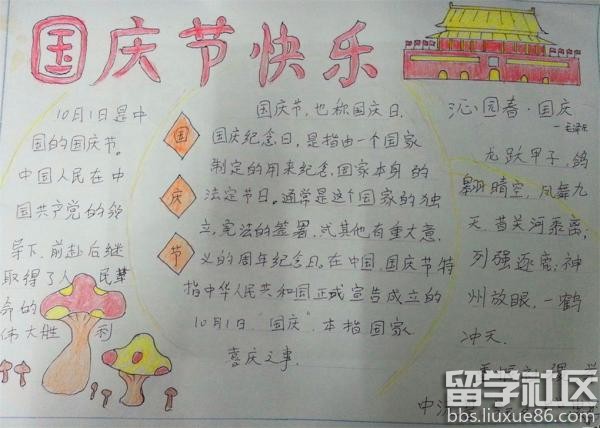 国庆节快乐
10月1日是中
国的国庆节。
中国人民在中
国共产党的领
导下,前赴后继
取得了人民革
命的
伟大胜利
国
庆
节
国庆节,也称国庆日、
国庆纪念日,是指由一个国家
制定的用来纪念国家本身的
法定节日。通常是这个国家的独
立、宪法的签署,或其他有重大意
义的周年纪念日。在中国,国庆节特
指中华人民共和国正式宣告成立的
10月1日。"国庆"本指国家
喜庆之事.
沁园春·国庆
龙跃甲子,鸽
翱晴空,凤舞九
天.昔关河乖离;
列强逐鹿;神
州放眼,一鹤
冲天.
留学社区
bbs.liuxue86.com